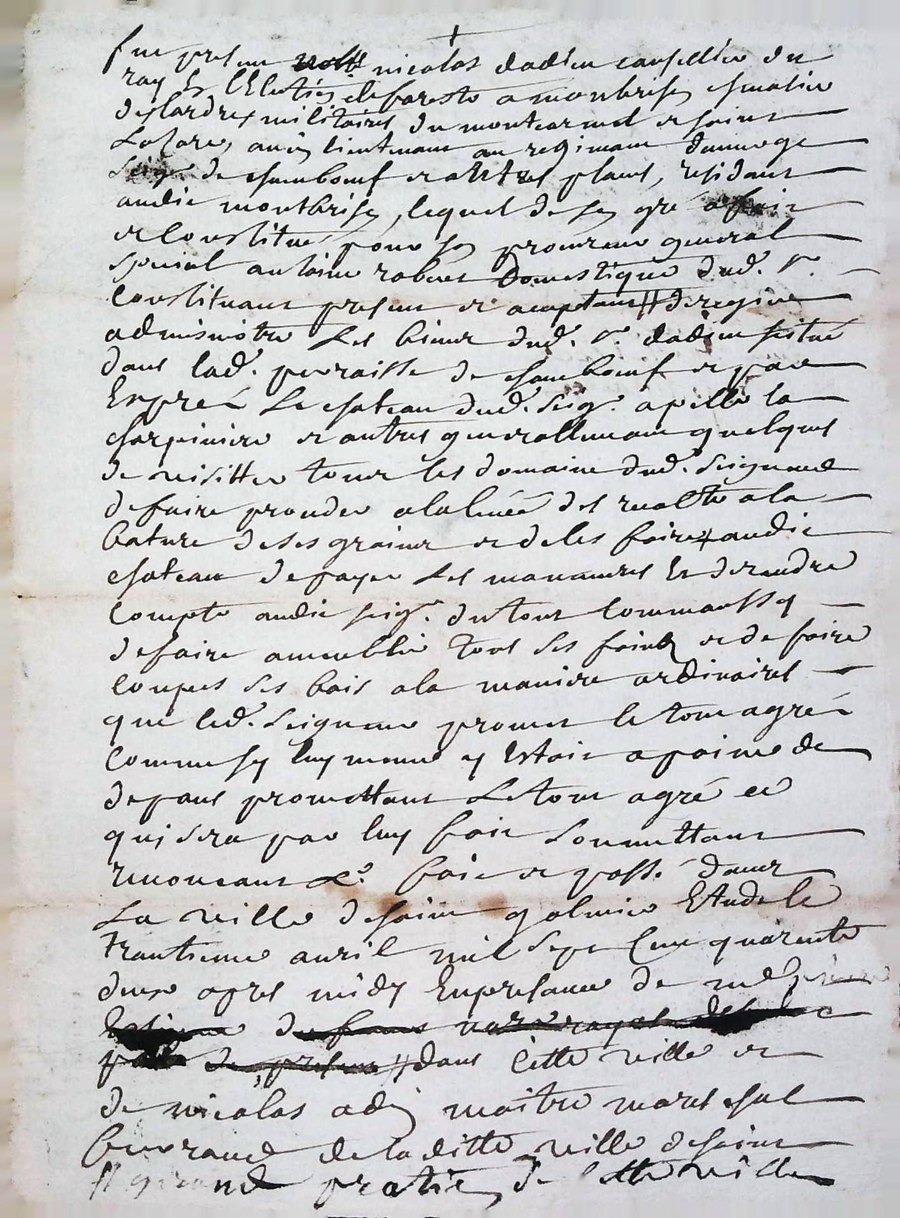 fut present nicolas dadieu conseillier du
roy En l'Election de foreste a monbrison chevalier
des ordres militaires du montcarmel et saint
Lazare, ancien lieutenant au regiment
Seigr de chambœuf et autres places, residant
audit montbrison, lequel de son gré a fait
et Constitué pour son procureur general
special antoine robert Domestique dud. Sr
Constituant present et aceptant de regir
administre Les biens dud. Sr dadieu scitué
dans lad. parroisse de chambœuf et par
Exprés Le chateau dud. Seigr. apellé la
charpiniere et autres generallement quelques
de visitter tous les domaine dud. Seigneur
de faire prendre a la levée des recolte a la
bature de ses grains et de les faire audit
chateau de payer Les manœuvres Et de rendre
Compte audit Seigr. du tout Comme aussy
de faire ameublir tous ses foins et de faire
Coupes ses bois a la maniere ordinaires
que led. Seigneur promet le tout agréé
Comme sy luy meme y Estoit a peine de
depans promettant Le tout agré ce
qui sera par luy fait Soumettant
renonceant &a. fait et passé dans
La ville de saint galmier Etude le
Trantieme avril mil sept Cent quarente
deux apres midy En presance de
dans Cette ville et
de nicolas maitre marechal
de la ditte ville de saint
praticien de Cette ville